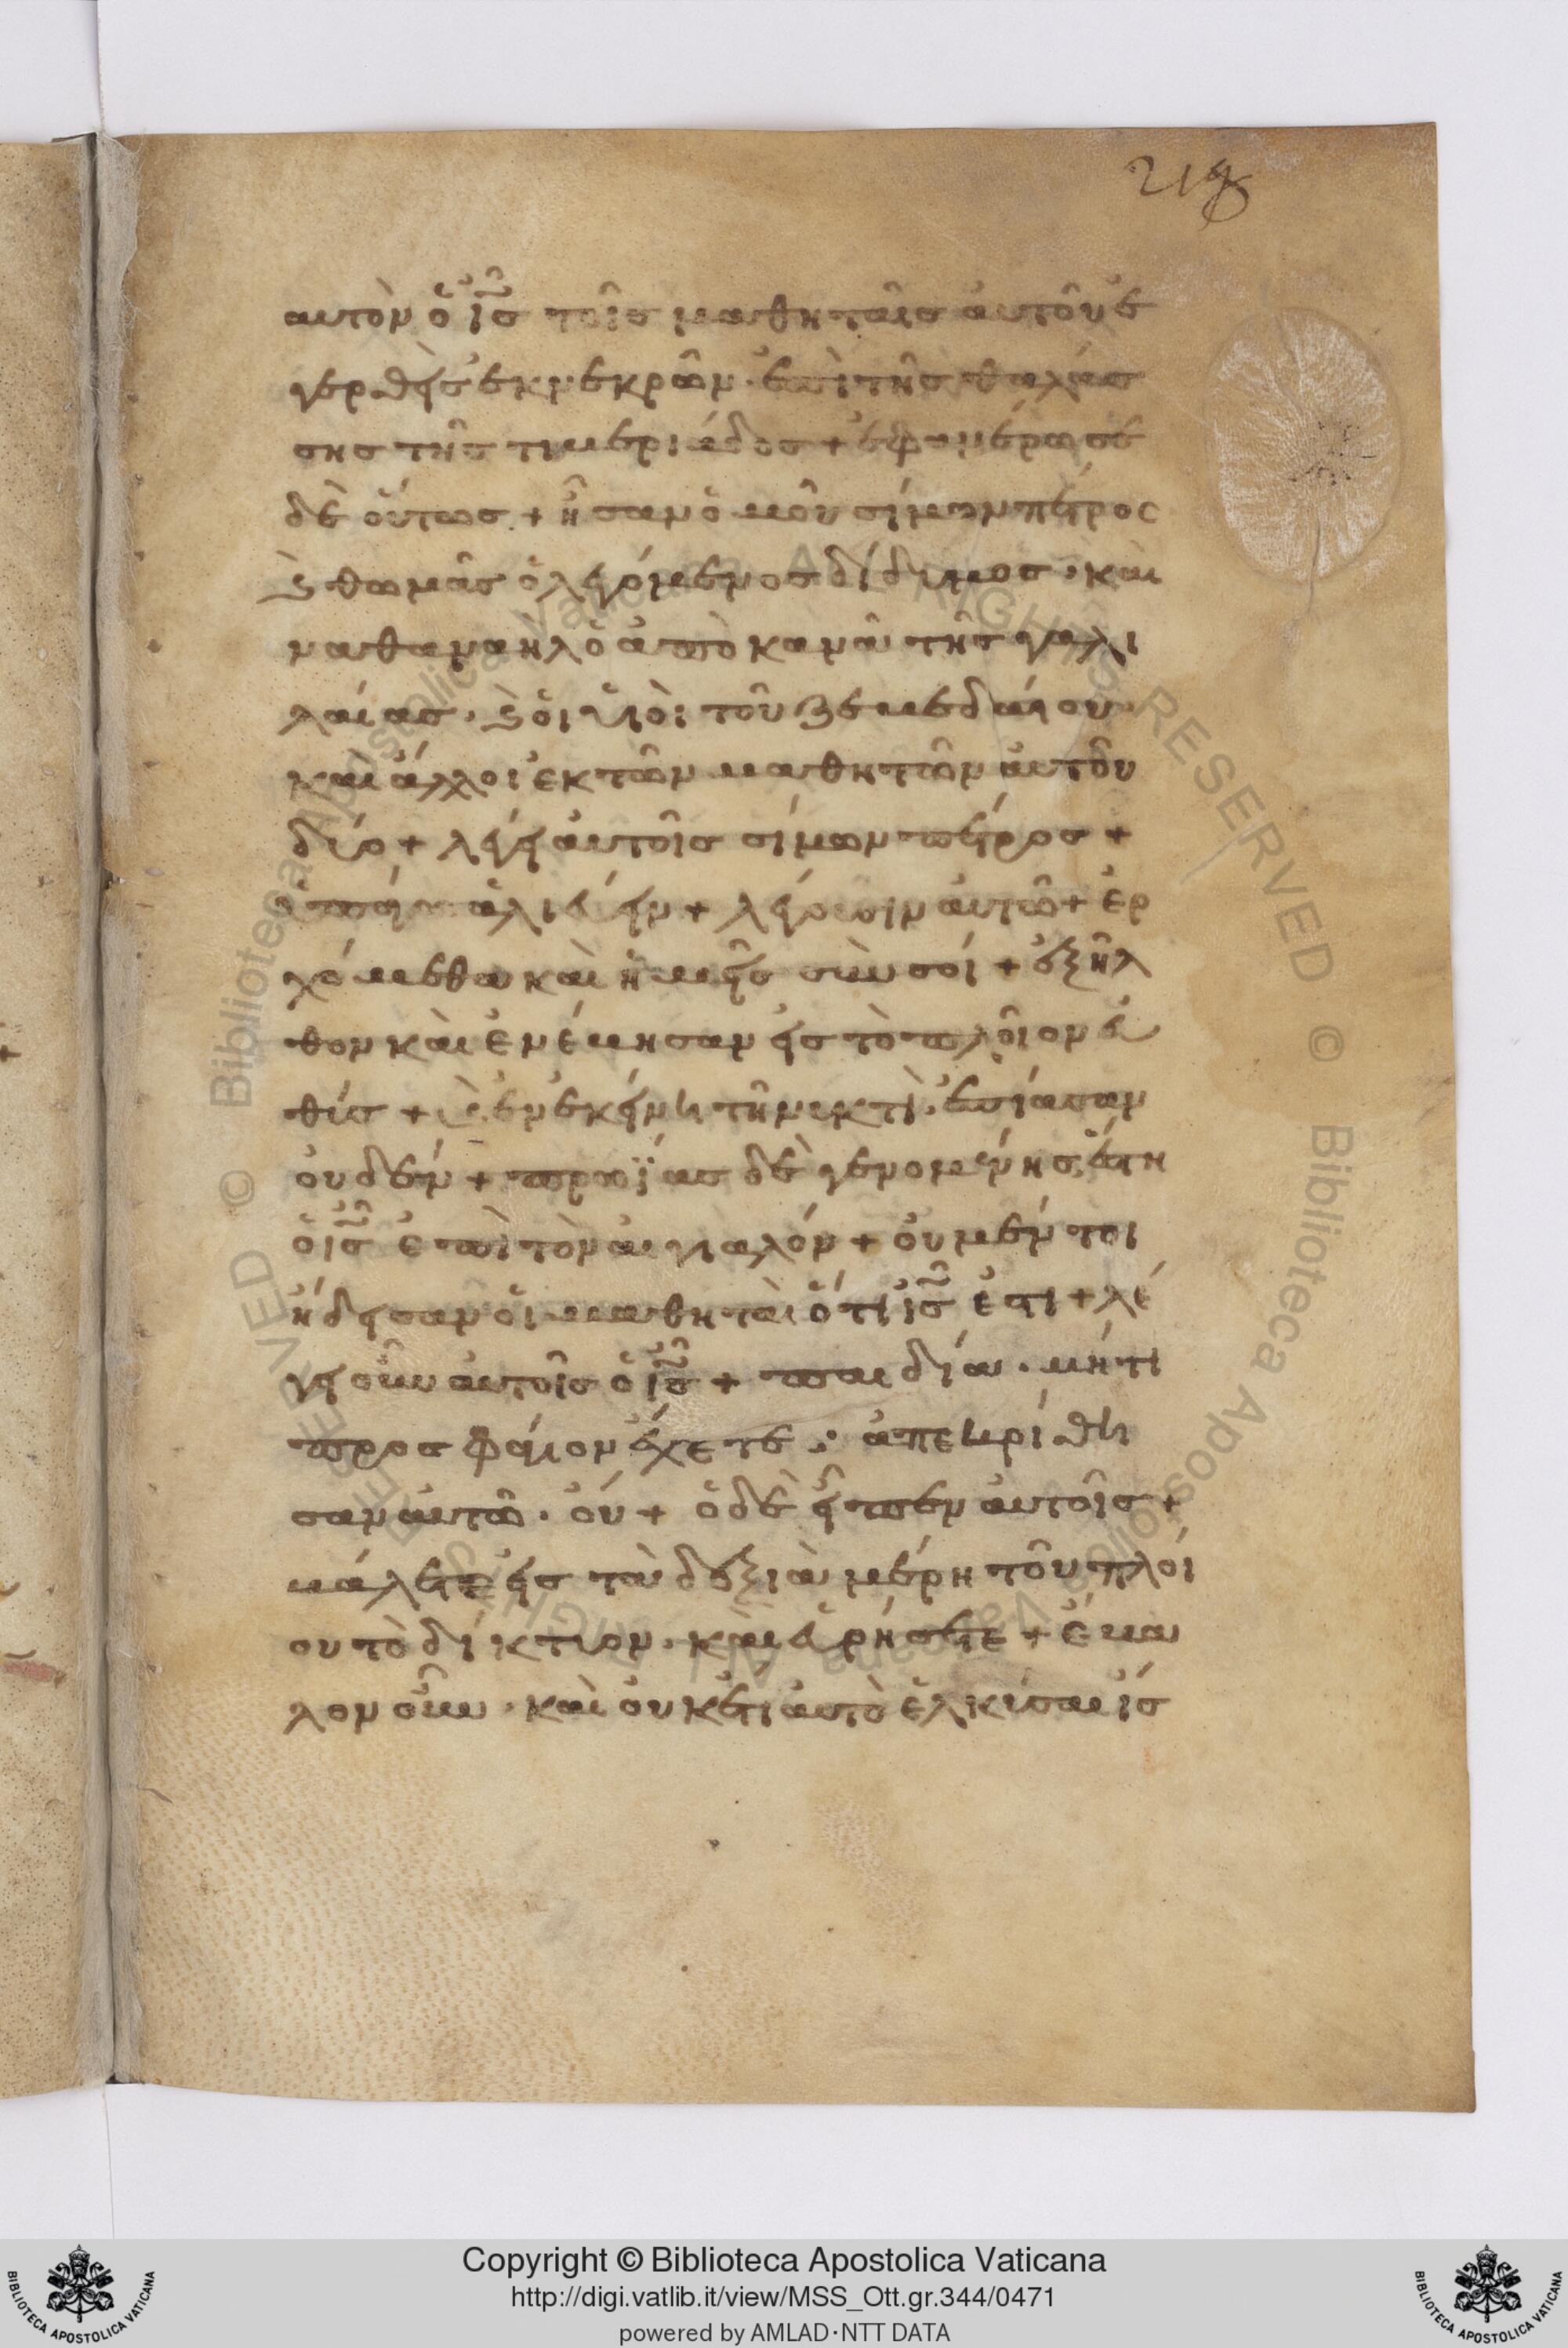 218
αυτὸν ὁ ἰ̅σ̅ τοῖσ μαθηταῖσ ἀυτοῦ ἐ
γερθεὶσ ἐκ νεκρῶν · ἐπὶ τῆσ θαλάσ
σησ τῆσ τιβεριάδοσ + ἐφανέρωσε
δὲ ὅυτωσ + ἦσαν ὁμοῦ σίμων πέτροσ
ϗ θωμᾶσ ὁ λεγόμενοσ δίδυμοσ · καὶ
ναθαναὴλ ὁ ἀπὸ κανᾶ τῆσ γαλι
λαίασ · ϗ ὁι ὑιὸι τοῦ ζεβεδαίου ·
καὶ ἄλλοι ἐκ τῶν μαθητῶν ἀυτοῦ
δύο + λέγει ἀυτοῖσ σίμων πέτροσ +
ὑπάγω ἁλιέυειν + λέγουσιν ἀυτῶ + ἐρ
χόμεθα καὶ ἡμεῖσ σὺν σόι + ἐξῆλ
θον καὶ ἐνέβησαν εἰσ τὸ πλοῖον ἐυ
θύσ + ϗ ἐν ἐκείνη τῆ νυκτὶ · ἐπίασαν
ουδέν + πρωΐασ δὲ γενομένησ ἔστη
ὁ ἰ̅σ̅ ἐπὶ τὸν ἀιγιαλόν + ὀυ μέν τοι
ἤδεισαν ὁι μαθηταὶ ὅτι ἰ̅σ̅ ἐστι + λέ
γει οὖν αυτοῖσ ὁ ἰ̅σ̅ + παιδία · μήτι
προσφάγιον ἔχετε ; ἀπεκρίθη
σαν ἀυτῶ · ὀύ + ὁ δὲ εἶπεν ἀυτοῖσ +
βάλετε εἰσ τὰ δεξιὰ μέρη τοῦ πλόι
ου τὸ δίκτυον · καὶ ἑυρήσετε + ἔβα
λον οὖν · καὶ ὀυκέτι ἀυτὸ ἑλκύσαι ἴσ
Copyright © Biblioteca Apostolica Vaticana
http://digi.vatlib.it/view/MSS_Ott.gr.344/0471
powered by AMLAD·NTT DATA
BIBLIOTECA APOSTOLICA VATICANA
BIBLIOTECA APOSTOLICA VATICANA